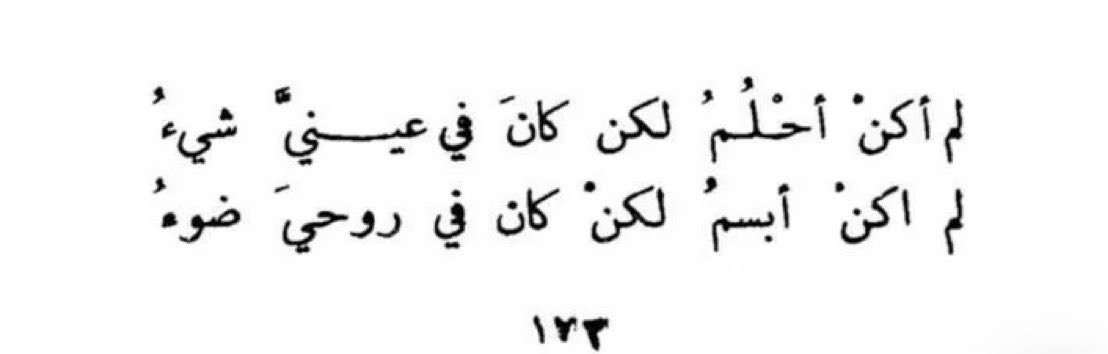 لم أكنْ أحْلُمُ لكن كانَ في عيـــنيَّ شيءُ
لم اكنْ أبسمُ لكنْ كان في روحيَ ضوءُ
١٧٣